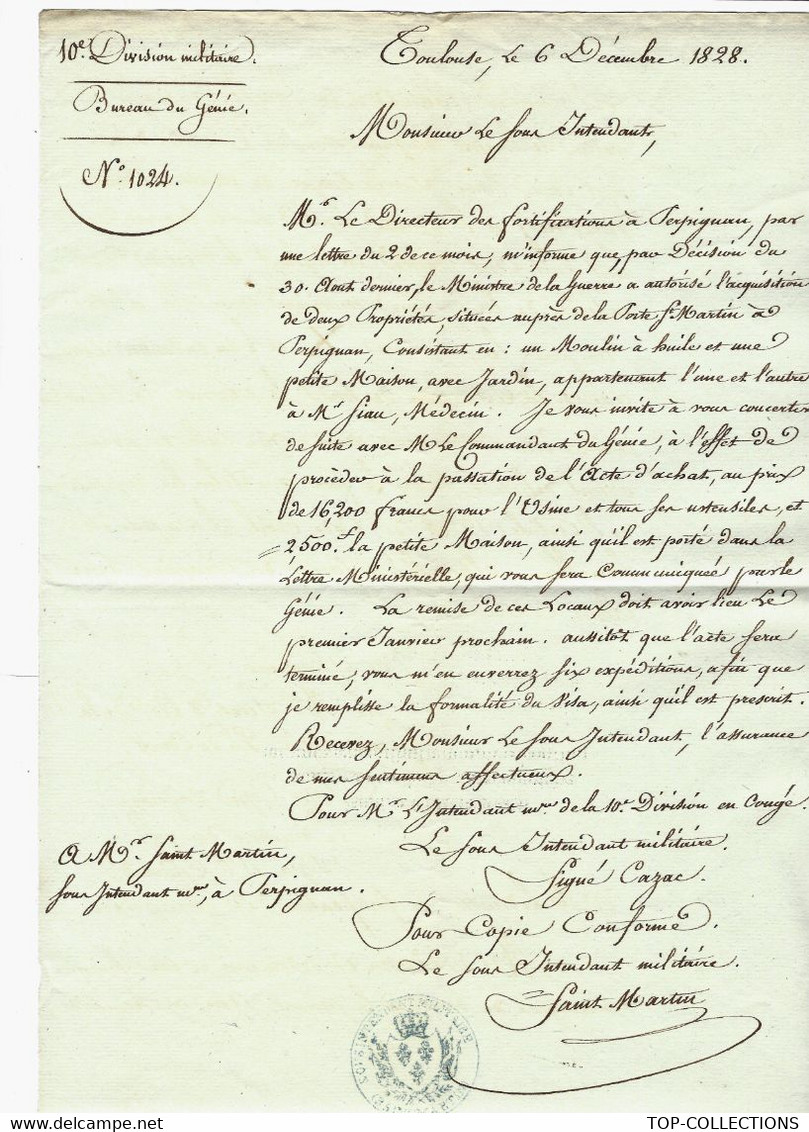 10e. Division militaire.
Bureau du Génie.
N° 1024.
Toulouse, Le 6 Décembre 1828.
Monsieur Le sous Intendant,
Mr. Le Directeur des fortifications à Perpignan, par
une lettre du 2 de ce mois, m'informe que, par Décision du
30. Aout dernier, le Ministre de la Guerre a autorisé l'acquisition
de deux Propriétés, situées auprès de la Porte St. Martin à
Perpignan, Consistant en : un Moulin à huile et une
petite Maison, avec Jardin, appartenant l'une et l'autre
à Mr Siau, Médecin. Je vous invite à vous concerter
de suite avec M. Le Commandant du Génie, à l'effet de
procèder à la passation de l'Acte d'achat, au prix
de 16,200 francs pour l'Usine et tous ses ustensiles, et
2500.f la petite Maison, ainsi qu'il est porté dans la
Lettre Ministérielle, qui vous sera Communiquée par le
Génie. La remise de ces Locaux doit avoir lieu Le
premier Janvier prochain. aussitot que l'acte sera
terminé, vous m'en enverrez six expéditions, afin que
je remplisse la formalité du Visa, ainsi qu'il est prescrit.
Recevez, Monsieur Le sous Intendant, l'assurance
de mes sentimens affectueux.
Pour Mr. L'Intendant mre. de la 10e. Division en Congé.
Le sous Intendant militaire.
Signé Cazac.
A Mr. Saint Martin,
sous Intendant mre., à Perpignan.
Pour Copie Conforme.
Le sous Intendant militaire.
Saint Martin
TOP-COLLECTIONS